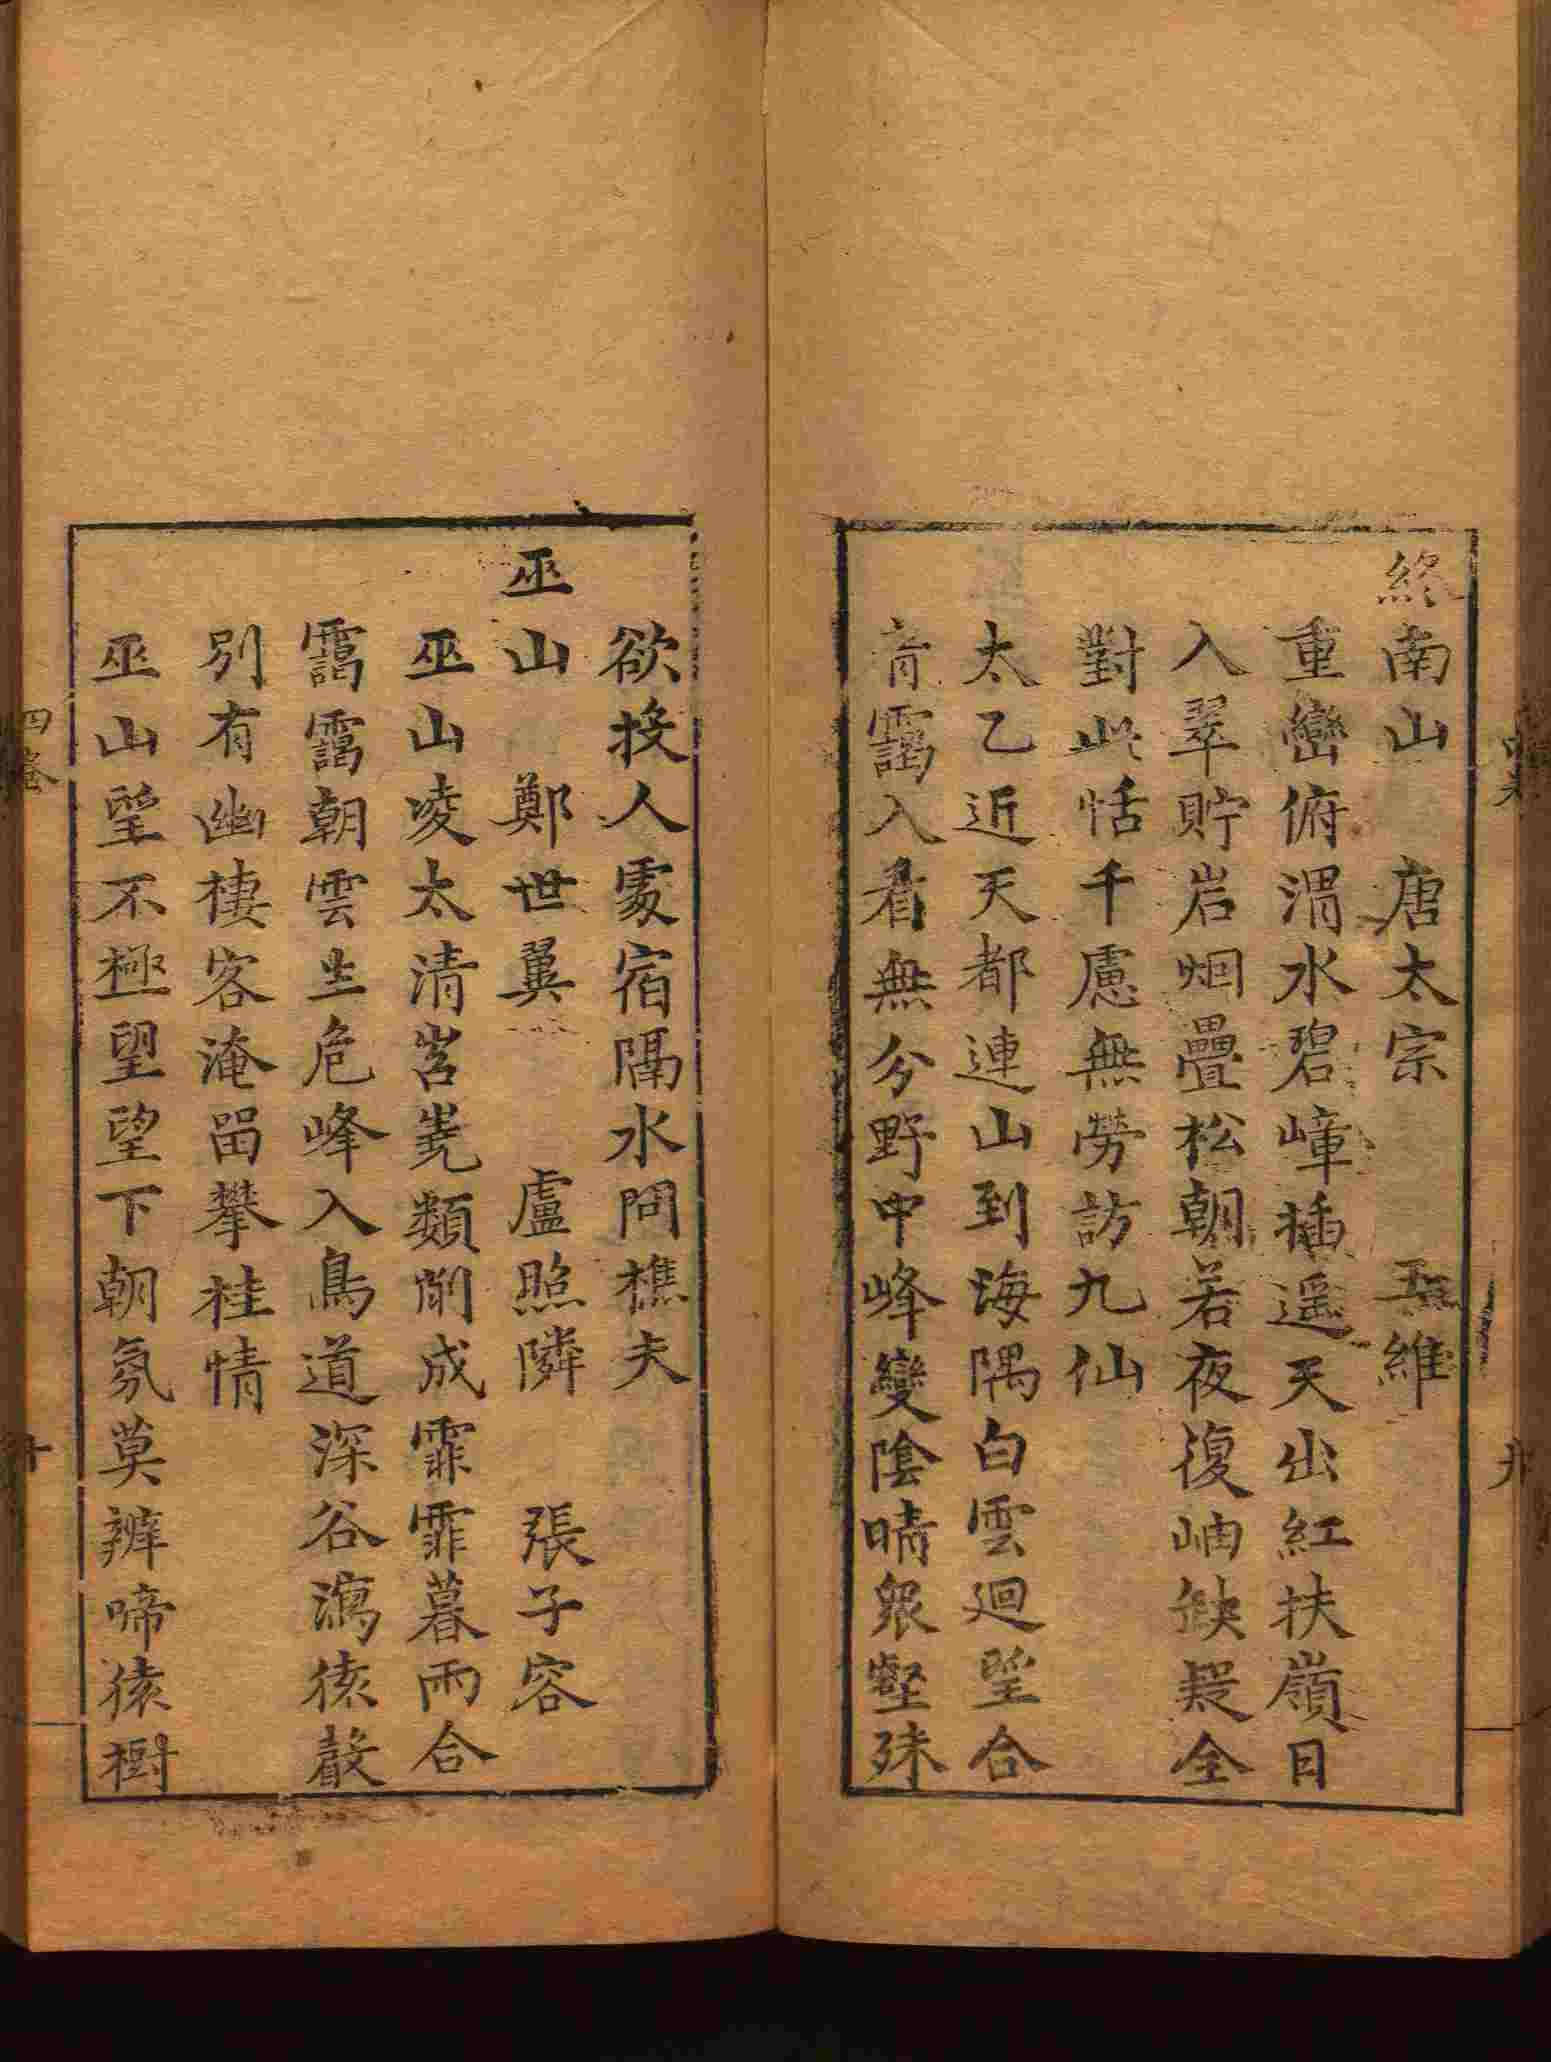 終南山　唐太宗　王維
重巒俯渭水碧嶂插遥天出紅扶嶺日
入翠貯岩烟疊松朝若夜復岫缺疑全
對此恬千慮無勞訪九仙
太乙近天都連山到海隅白雲迴望合
青靄入看無分野中峰變陰晴衆壑殊
欲投人處宿隔水問樵夫
巫山　鄭世翼　盧照隣　張子容
巫山凌太清岧嶤類削成霏霏暮雨合
靄靄朝雲生危峰入鳥道深谷瀉猿聲
別有幽棲客淹留攀桂情
巫山望不極望望下朝氛莫辨啼猿樹
四卷
十